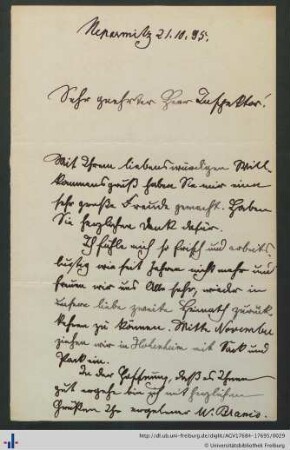 Neparmitz 21.10.95.
Sehr geehrter Herr Inspektor!
Mit Ihrem liebenswürdigen Will-
kommensgruß haben Sie mir eine
sehr große Freude gemacht. Haben
Sie herzlichen Dank dafür.
Ich fühle mich so frisch und arbeits-
lustig wie seit Jahren nicht mehr und
freuen wir uns Alle sehr, wieder in
unsere liebe zweite Heimath zurück-
kehren zu können. Mitte November
ziehen wir in Hohenheim mit Sack und
Pack ein.
In der Hoffnung, daß es Ihnen
gut ergehe bin ich mit herzlichen
Grüßen Ihr ergebener W.
http://dl.ub.uni-freiburg.de/diglit/AGV17684-17695/0029
Universitätsbibliothek Freiburg